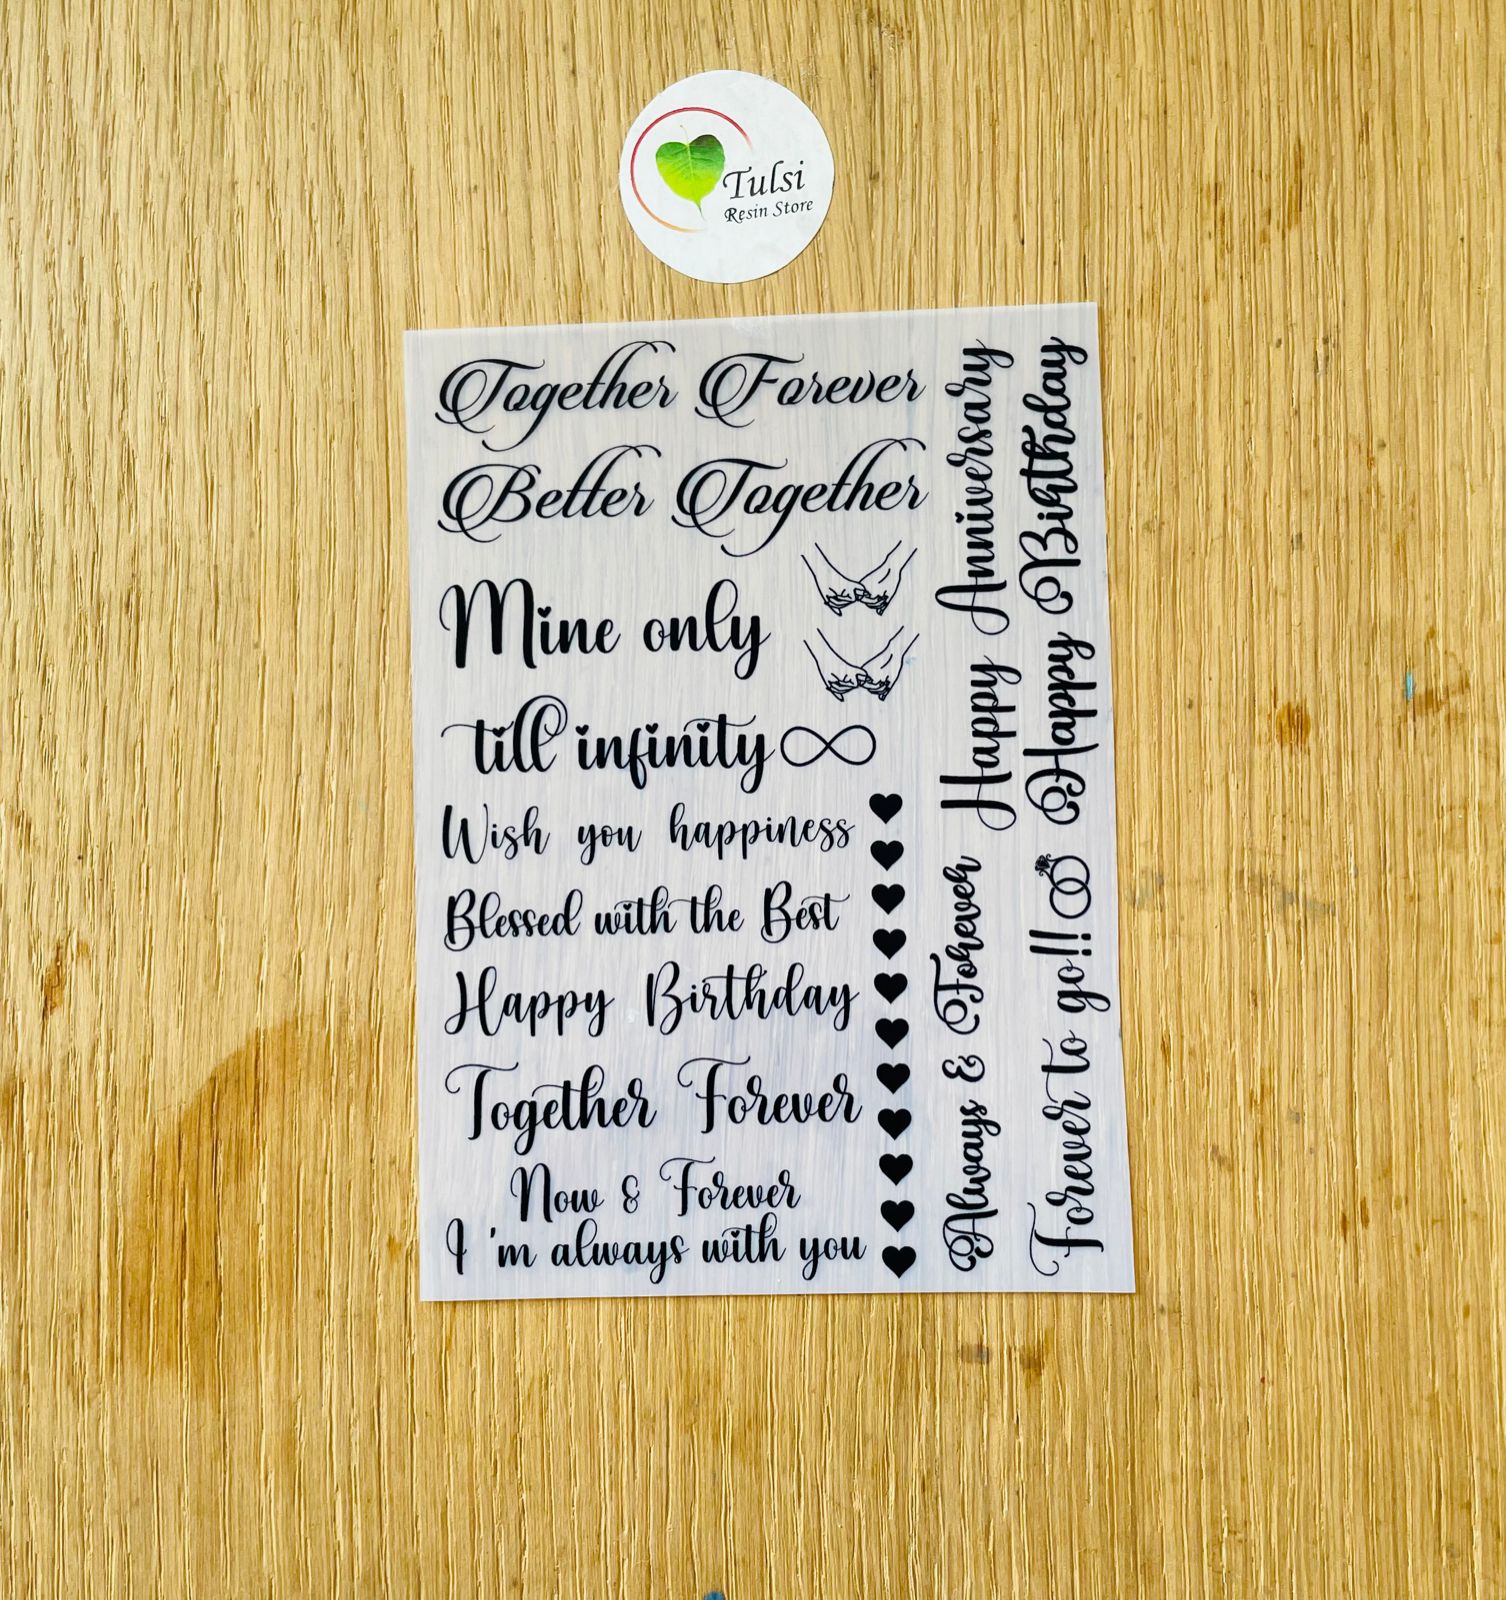 Tulsi
Resin Store
Together Forever
Better Together
Mine only
till infinity
Wish you happiness
Blessed with the Best
Happy Birthday
Together Forever
Now & Forever
I 'm always with you
Happy Anniversary
Always & Forever
Happy Birthday
Forever to go!!